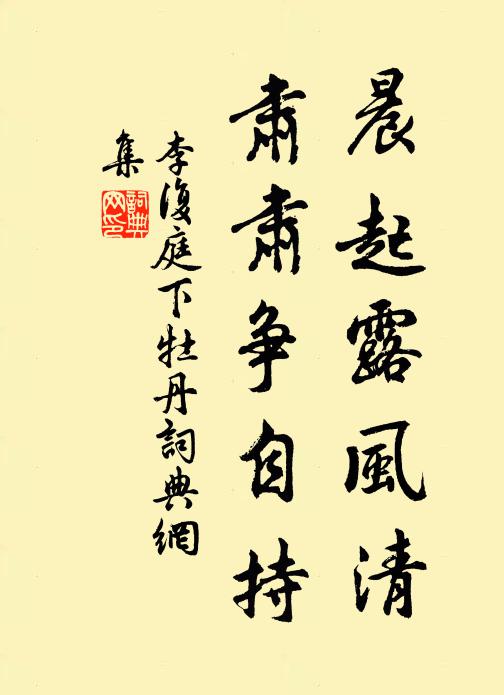 晨起露風清
肅肅爭自持
李復庭下牡丹詞典網
集
詞典
网印